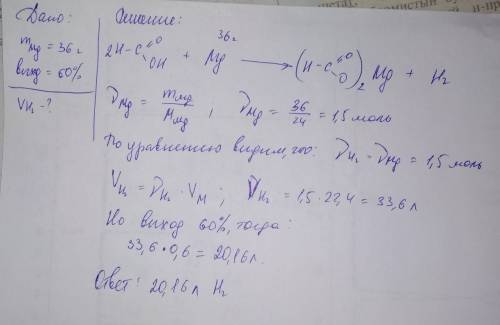 Дано: Решение:
m Mg = 36 г
выход = 60%
V H₂ - ?
36 г
2H-C(=O)OH + Mg ⟶ (H-C(=O)O)₂ Mg + H₂
ν Mg = m Mg / M Mg ; ν Mg = 36/24 = 1,5 моль
По уравнению видим, что: ν H₂ = ν Mg = 1,5 моль
V H₂ = ν H₂ · V M ; V H₂ = 1,5 · 22,4 = 33,6 л
Но выход 60%, тогда:
33,6 · 0,6 = 20,16 л.
Ответ: 20,16 л H₂